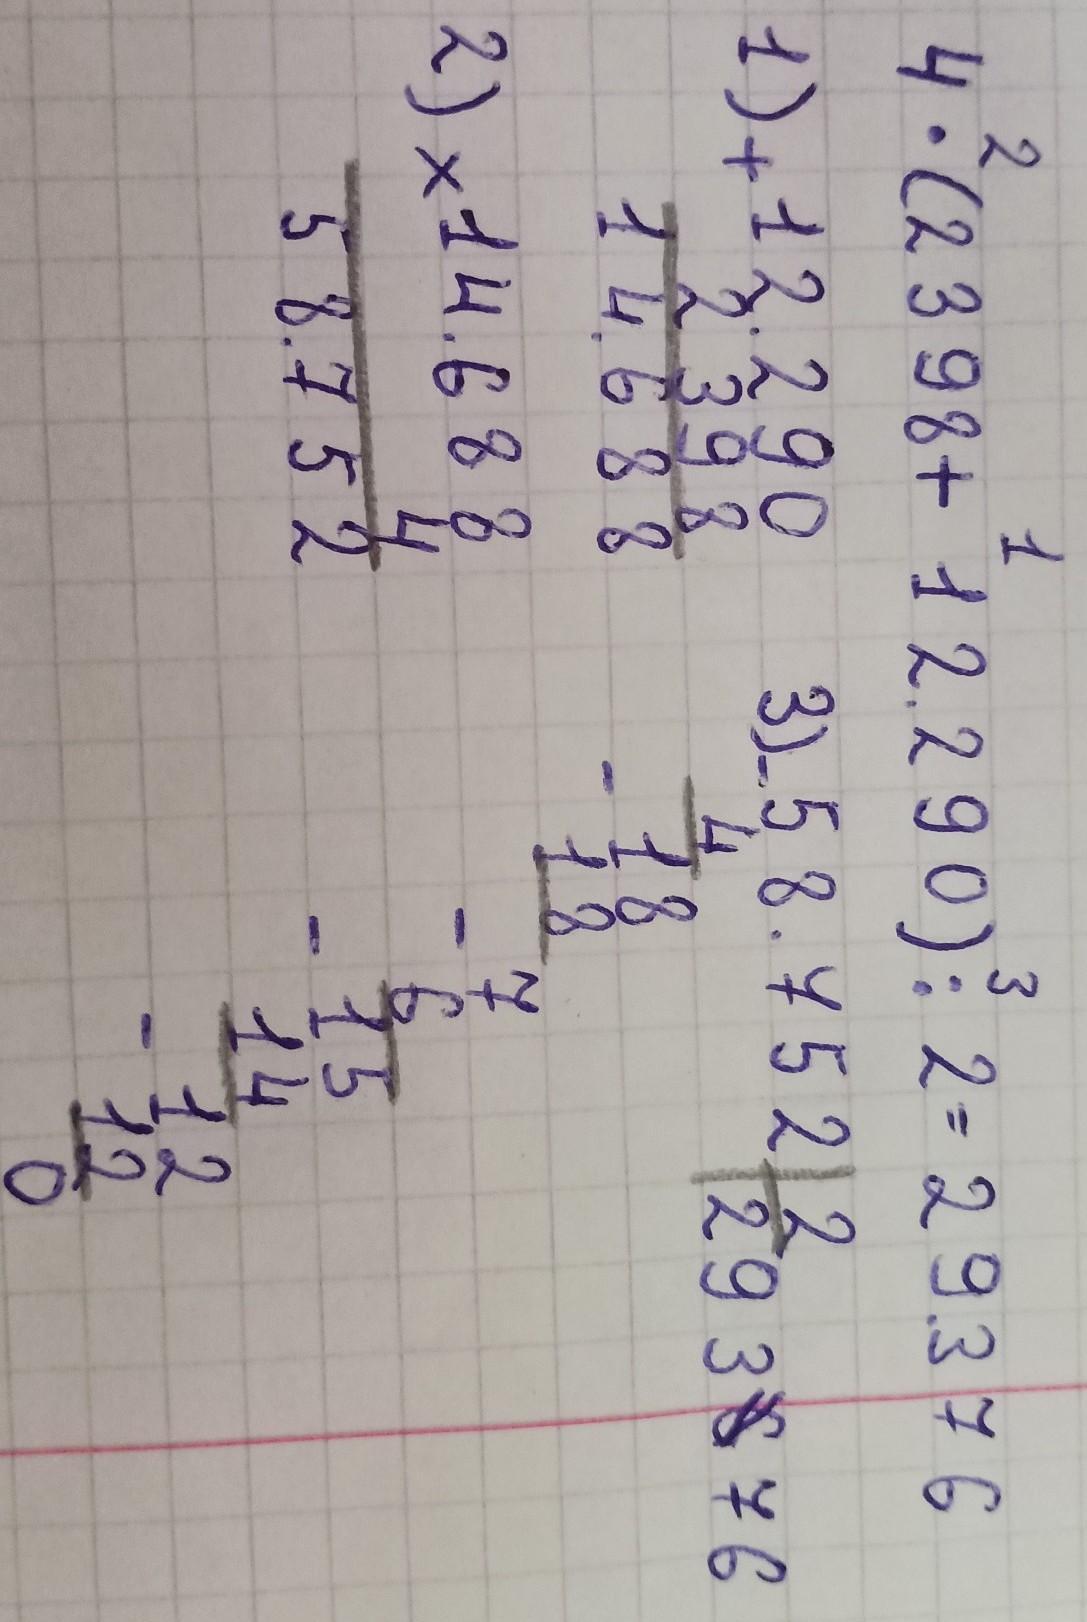 2 1 3
4 · (2398 + 12.290) : 2 = 29.376
1) + 12.290
2398
14.688
2) × 14.688
4
58.752
3) - 58.752 | 2
4 293 76
- 18
18
- 7
6
- 15
14
- 12
12
0